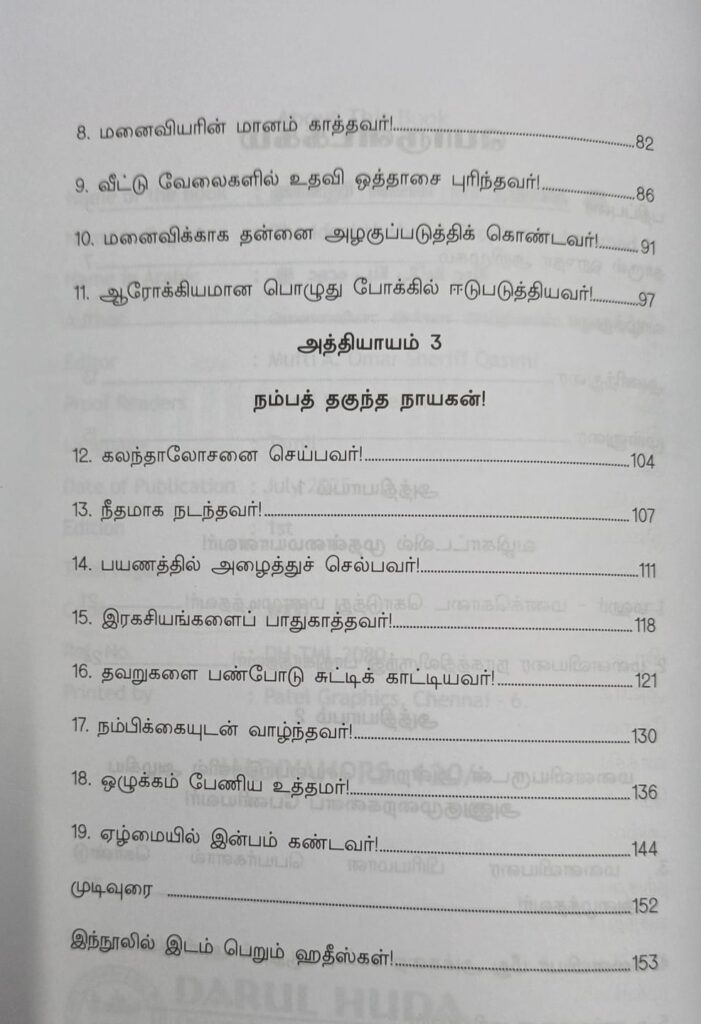 8. மனைவியரின் மானம் காத்தவர்!....................82
9. வீட்டு வேலைகளில் உதவி ஒத்தாசை புரிந்தவர்!....................86
10. மனைவிக்காக தன்னை அழகுப்படுத்திக் கொண்டவர்!............91
11. ஆரோக்கியமான பொழுது போக்கில் ஈடுபடுத்தியவர்!............97
அத்தியாயம் 3
நம்பத் தகுந்த நாயகன்!
12. கலந்தாலோசனை செய்பவர்!....................104
13. நீதமாக நடந்தவர்!....................107
14. பயணத்தில் அழைத்துச் செல்பவர்!....................111
15. இரகசியங்களைப் பாதுகாத்தவர்!....................118
16. தவறுகளை பண்போடு சுட்டிக் காட்டியவர்!....................121
17. நம்பிக்கையுடன் வாழ்ந்தவர்!....................130
18. ஒழுக்கம் பேணிய உத்தமர்!....................136
19. ஏழ்மையில் இன்பம் கண்டவர்!....................144
முடிவுரை ....................152
இந்நூலில் இடம் பெறும் ஹதீஸ்கள்!....................153